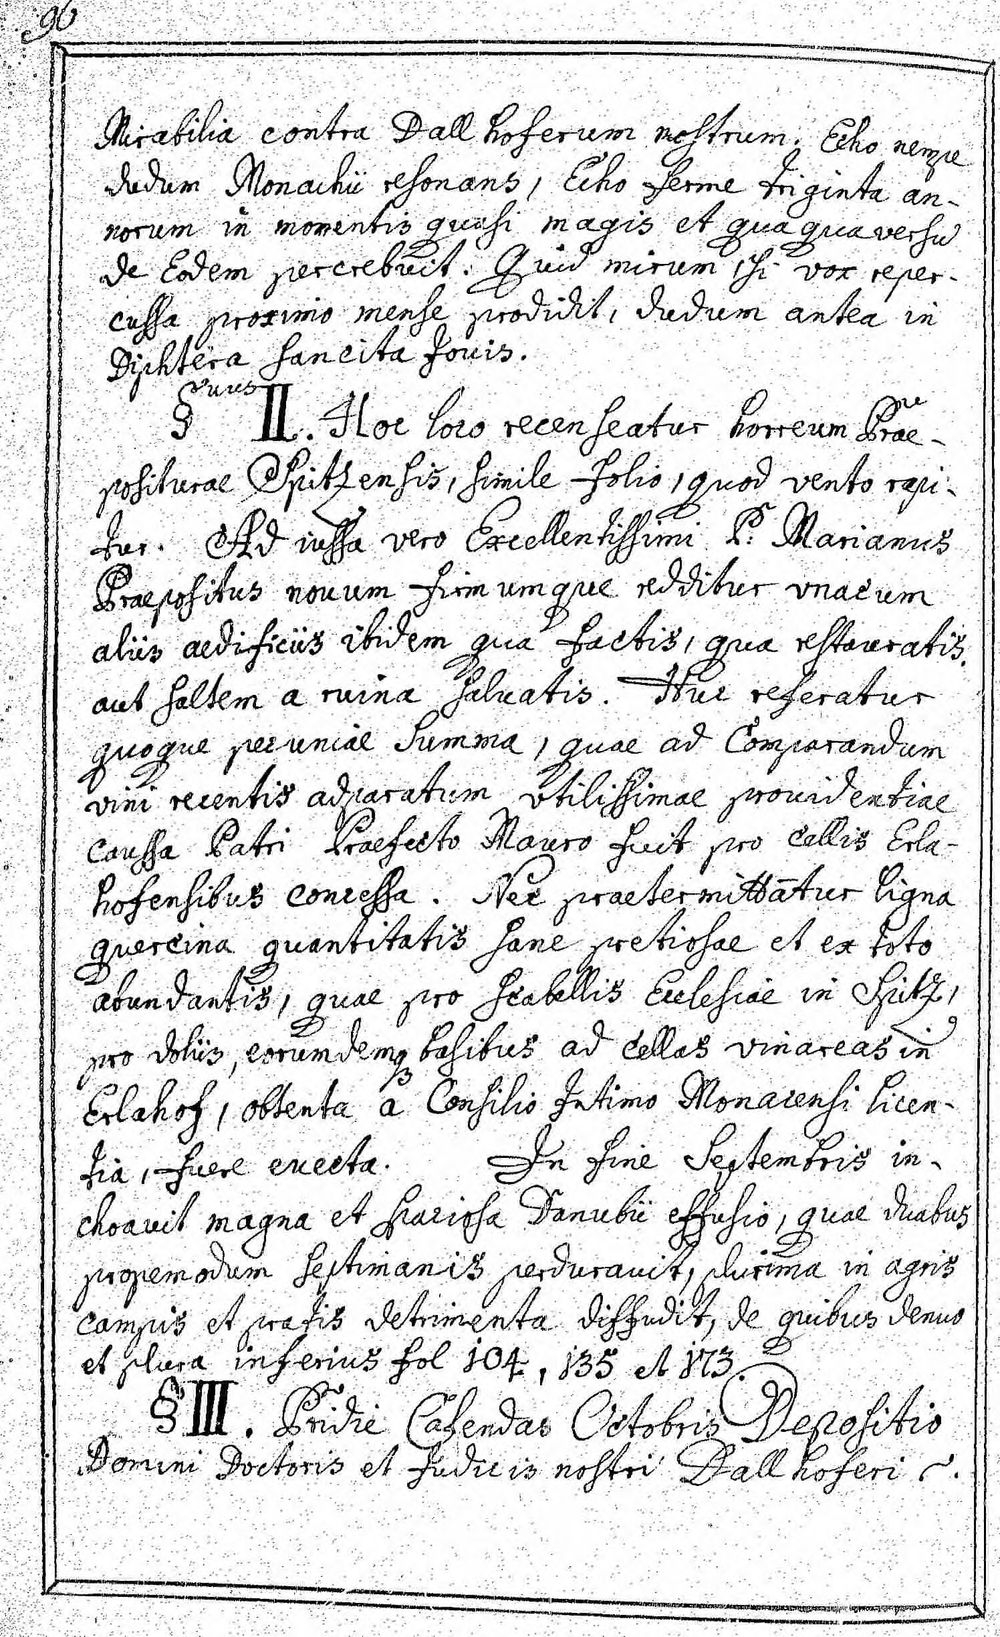 96
Mirabilia contra Dallhoferum nostrum. Echo nempe
dudum Monachii resonans, Echo ferme triginta an-
norum in momentis quasi magis et quaquaversu
de Eodem percrebuit. Quid mirum, si vox reper-
cussa proximo mense prodidit, dudum antea in
Diphtera sancita Jovis.
§vus II. Hoc loco recenseatur horreum Prae-
positurae Spitzensis, simile folio, quod vento rapi-
tur. Ad iussa vero Excellentissimi P. Marianus
Praepositus novum firmumque redditur unacum
aliis aedificiis ibidem qua factis, qua restauratis,
aut saltem a ruina salvatis. Huc referatur
quoque pecuniae summa, quae ad Comparandum
vini recentis adparatum vtilissimae prouidentiae
caussa Patri Praefecto Mauro fuit pro cellis Erla-
hofensibus concessa. Nec praetermittātur ligna
quercina quantitatis sane pretiosae et ex toto
abundantis, quae pro scabellis Ecclesiae in Spitz,
pro doliis, eorumdemq basibus ad cellas vinareas in
Erlahof, obtenta a Consilio Intimo Monacensi licen-
tia, fuere evecta. In fine Septembris in-
choavit magna et spaciosa Danubii effusio, quae duabus
propemodum septimanis perduravit, plurima in agris
campis et pratis detrimenta diffudit, de quibus denuo
et plura inferius fol 104, 135 et 173.
§ III. Pridie Calendas Octobris Depositio
Domini Doctoris et Judicis nostri Dallhoferi